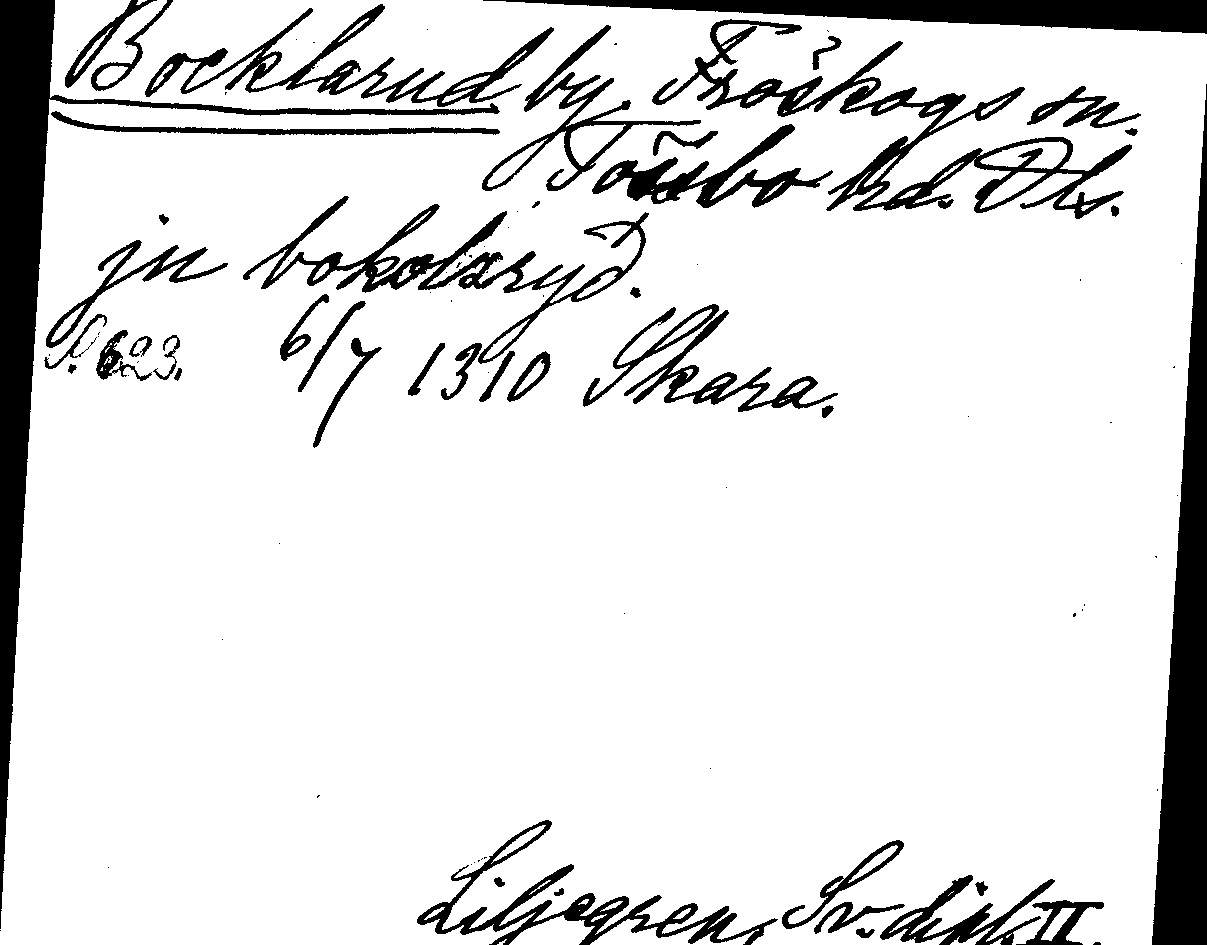 Bocklarud by. Fröskogs sn.
Tössbo hd. Dls.
jn bokolzryð.
S. 623. 6/7 1310 Skara.
Liljegren, Sv. dipl. II.